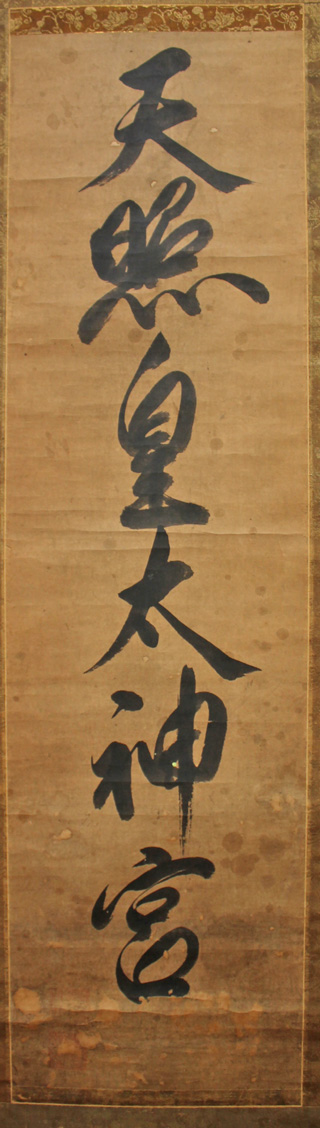 天照皇太神宮